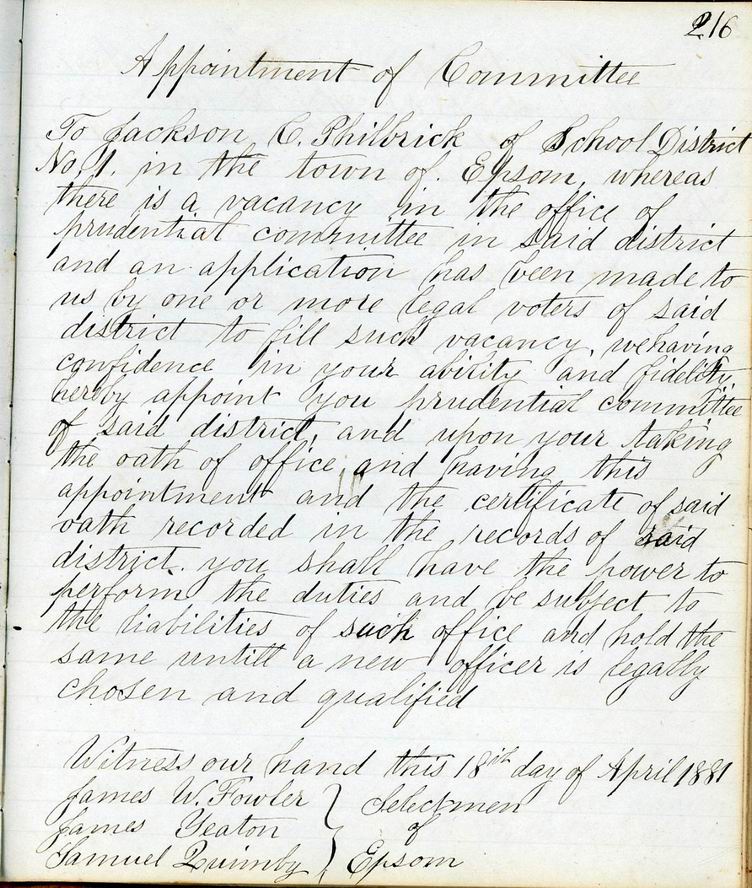 216
Appointment of Committee
To Jackson C. Philbrick of School District
No. 1. in the town of. Epsom, whereas
there is a vacancy in the office of
prudential committee in said district
and an application has been made to
us by one or more legal voters of said
district to fill such vacancy, we having
confidence in your ability and fidelity,
herby appoint you prudential committee
of said district, and upon your taking
the oath of office and having this
appointment and the certificate of said
oath recorded in the records of said
district. you shall have the power to
perform the duties and be subject to
the liabilities of such office and hold the
same untill a new officer is legally
chosen and qualified
Witness our hand this 18th day of April 1881
James W. Fowler } Selectmen
James Yeaton } of
Samuel Quimby } Epsom